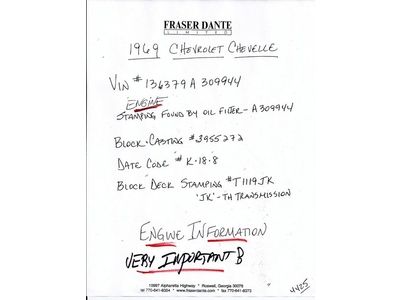 FRASER DANTE
LIMITED
1969 CHEVROLET CHEVELLE
VIN # 136379 A 309944
ENGINE
STAMPING FOUND BY OIL FILTER - A309944
BLOCK CASTING # 3955272
DATE CODE # K-18-8
BLOCK DECK STAMPING # T1119JK
'JK' - TH TRANSMISSION
ENGINE INFORMATION
VERY IMPORTANT
Alpharetta Highway * Roswell, Georgia 30076
tel 770-641-8004 * www.fraserdante.com * fax 770-641-8273
4425